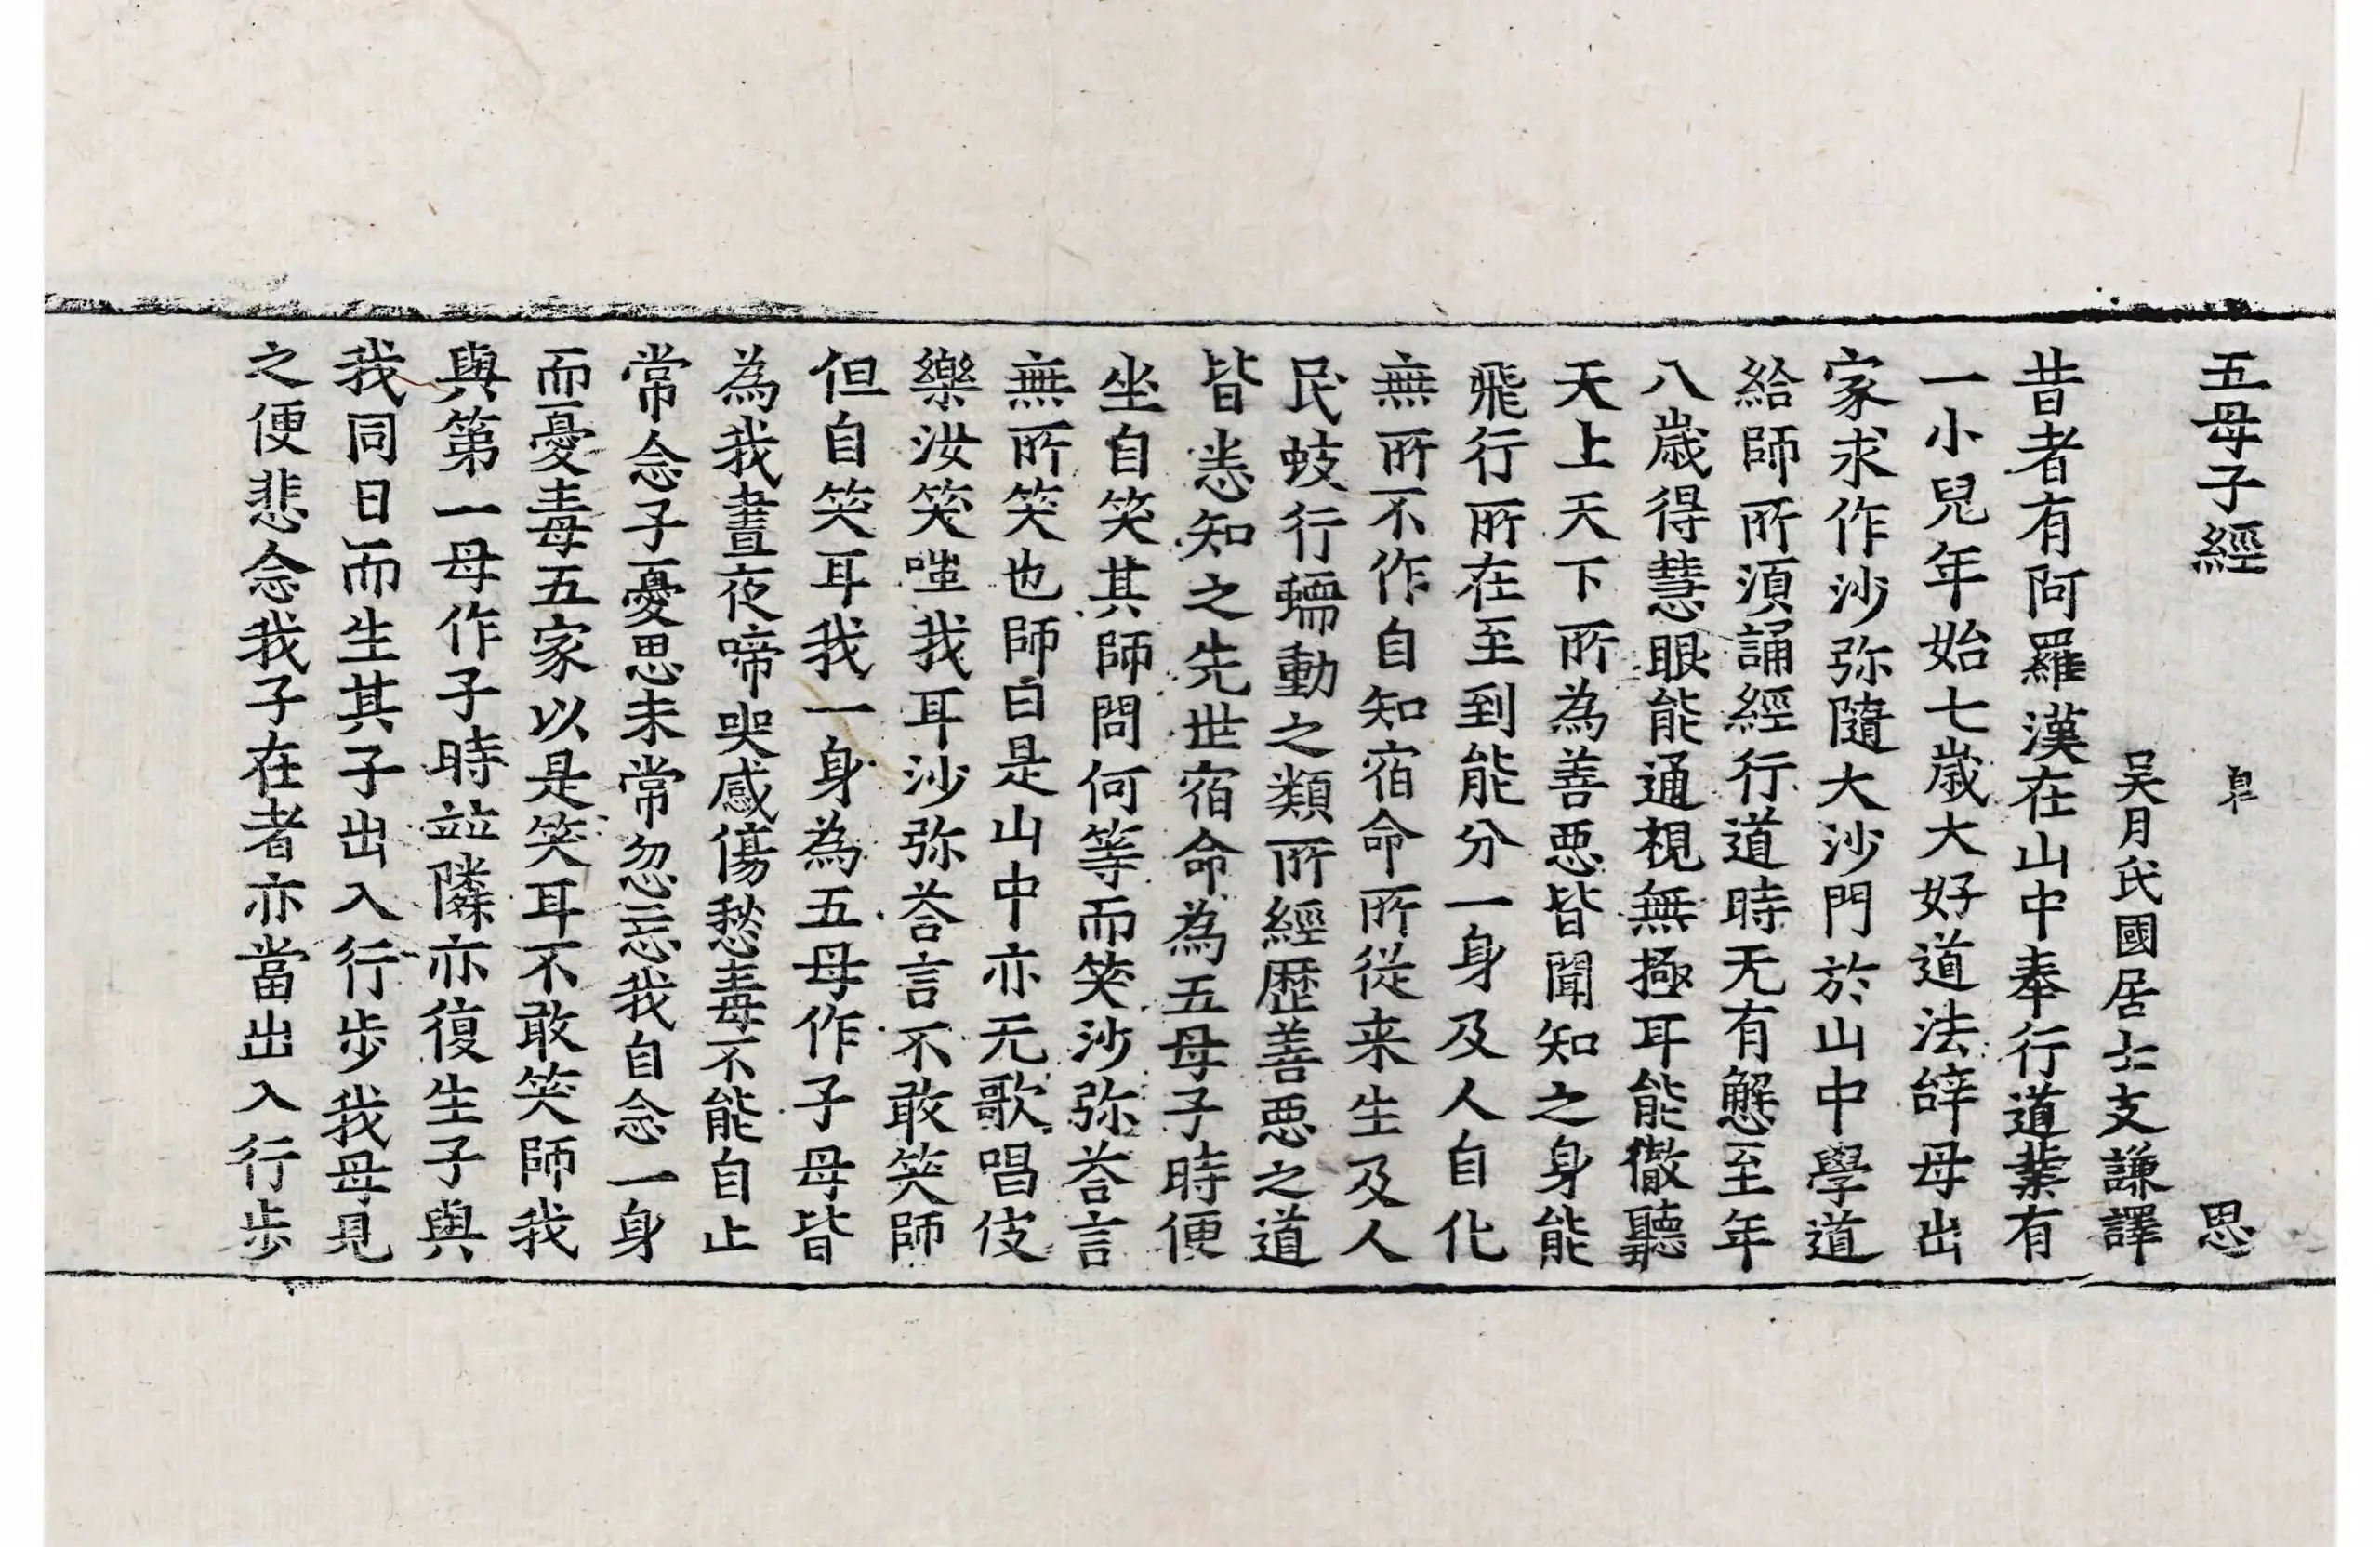 五母子經 思
吴月氏國居士支謙譯
昔者有阿羅漢在山中奉行道業有
一小兒年始七歲大好道法辝母出
家求作沙弥隨大沙門於山中學道
給師所須誦經行道時无有懈至年
八歲得慧眼能通視無極耳能徹聽
天上天下所為善惡皆聞知之身能
飛行所在至到能分一身及人自化
無所不作自知宿命所從来生及人
民蚑行蝡動之類所經歷善惡之道
皆悉知之先世宿命為五母子時便
坐自笑其師問何等而笑沙弥荅言
無所笑也師曰是山中亦无歌唱伎
樂汝笑嗤我耳沙弥荅言不敢笑師
但自笑耳我一身為五母作子母皆
為我晝夜啼哭感傷愁毒不能自止
常念子憂思未常忽忘我自念一身
而憂毒五家以是笑耳不敢笑師我
與第一母作子時並隣亦復生子與
我同日而生其子出入行步我母見
之便悲念我子在者亦當出入行步